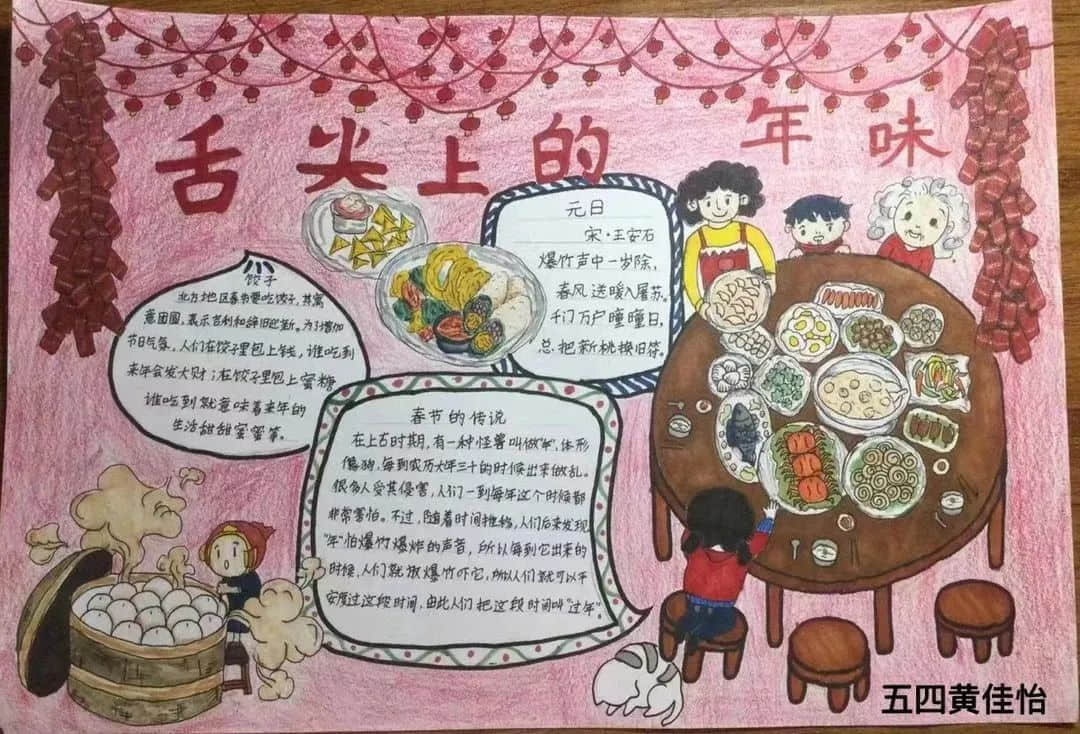 舌尖上的年味
饺子
北方地区春节要吃饺子，其寓
意团圆，表示吉利和辞旧迎新。为了增加
节日气氛，人们在饺子里包上钱，谁吃到
来年会发大财；在饺子里包上蜜糖
谁吃到就意味着来年的
生活甜甜蜜蜜等。
元日
宋·王安石
爆竹声中一岁除，
春风送暖入屠苏。
千门万户曈曈日，
总把新桃换旧符。
春节的传说
在上古时期，有一种怪兽叫做"年"，体形
像狗，每到农历大年三十的时候出来做乱。
很多人受其侵害，人们一到每年这个时候都
非常害怕。不过，随着时间推移，人们后来发现
"年"怕爆竹爆炸的声音，所以每到它出来的
时候，人们就放爆竹吓它，所以人们就可以平
安度过这段时间，由此人们把这段时间叫"过年"。
五四黄佳怡